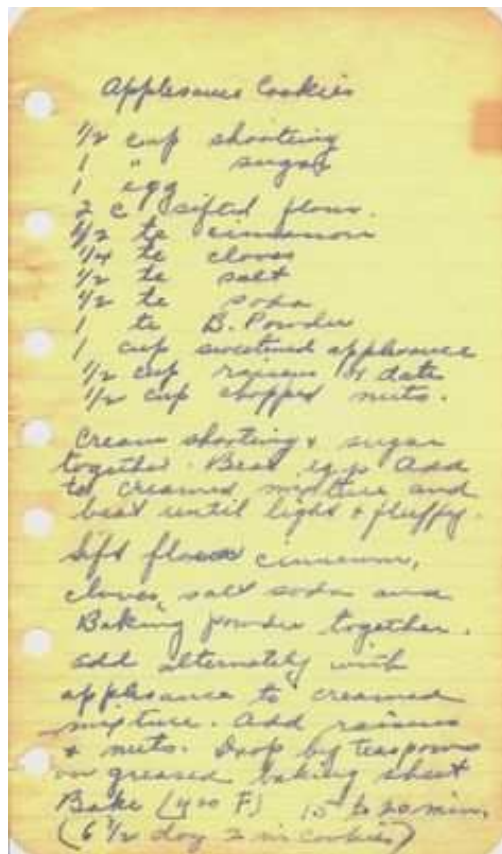 Applesauce Cookies
1/2 cup shorting
1 " sugar
1 egg
2 c sifted flour.
1/2 te cinnamon
1/4 te cloves
1/2 te salt
1/2 te soda
1 te B. Powder
1 cup sweetened applesauce
1/2 cup raisins or dates
1/2 cup chopped nuts.
Cream shorting & sugar
together. Beat egg Add
to creamed mixture and
beat until light & fluffy.
Sift flour cinnamon,
cloves, salt soda and
Baking powder together.
add alternately with
applesauce to creamed
mixture. Add raisins
& nuts. Drop by teaspoons
on greased baking sheet
Bake (400 F) 15 to 20 min.
(6 1/2 doz 2 in cookies)